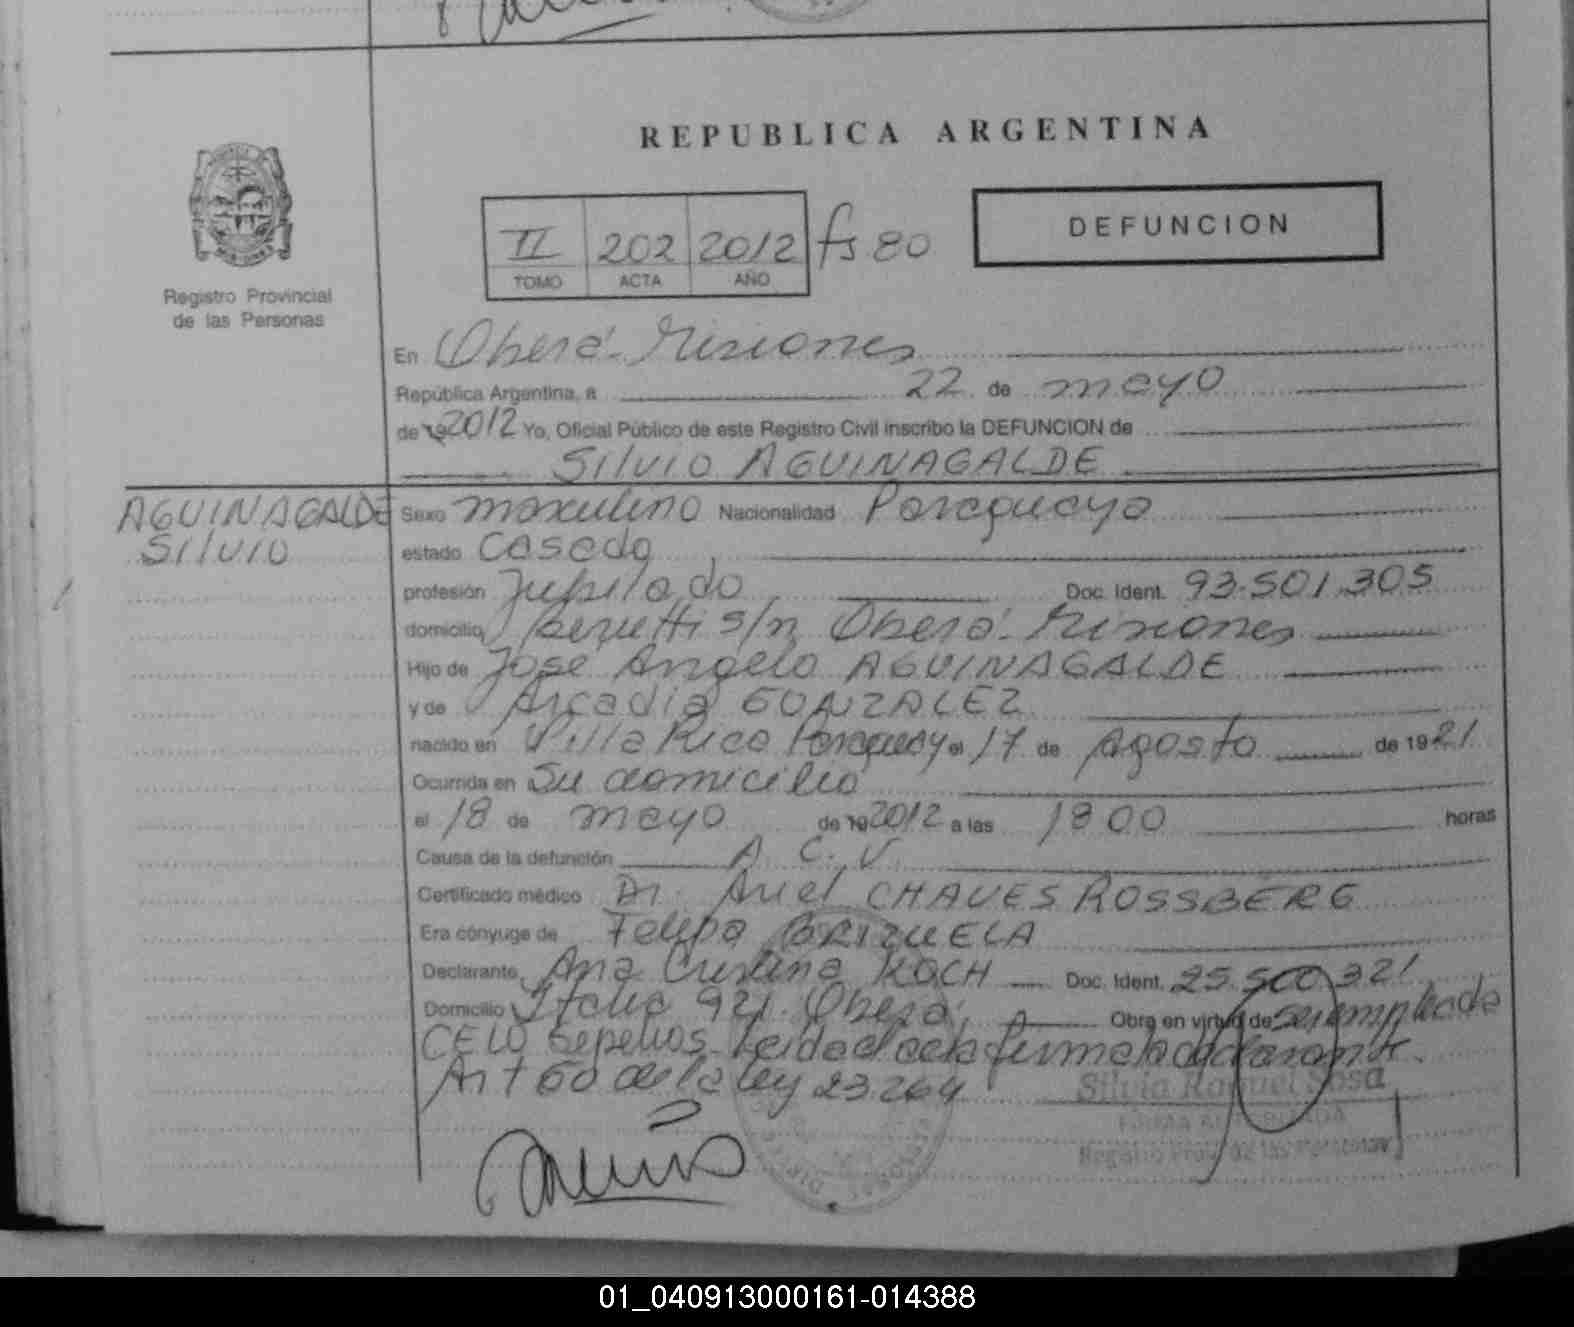 REPUBLICA ARGENTINA
DEFUNCION
II 202 2012 fs 80
TOMO ACTA AÑO
Registro Provincial
de las Personas
En Oberá - Misiones
República Argentina, a 22 de mayo
de 192012 Yo, Oficial Público de este Registro Civil inscribo la DEFUNCION de
Silvio AGUINAGALDE
AGUINAGALDE
Silvio
Sexo masculino Nacionalidad Paraguaya
estado Casado
profesión Jubilado Doc. Ident. 93.501.305
domicilio Berutti s/n Oberá - Misiones
Hijo de José Angelo AGUINAGALDE
y de Arcadia GONZALEZ
nacido en Villa Rica Paraguay el 17 de Agosto de 1921
Ocurrida en Su domicilio
el 18 de mayo de 192012 a las 1800 horas
Causa de la defunción A. C. V.
Certificado médico Dr. Ariel CHAVES ROSSBERG
Era cónyuge de Felipa BRIZUELA
Declarante Ana Cristina KOCH Doc. Ident. 25.500.321
Domicilio Italia 921. Oberá Obra en virtud de ser empleada
CELO Sepelios. Leida el acta firma la declarante.
Art 60 de la ley 23.264
Silvia Raquel Sosa
Registro Prov. de las Personas
01_040913000161-014388